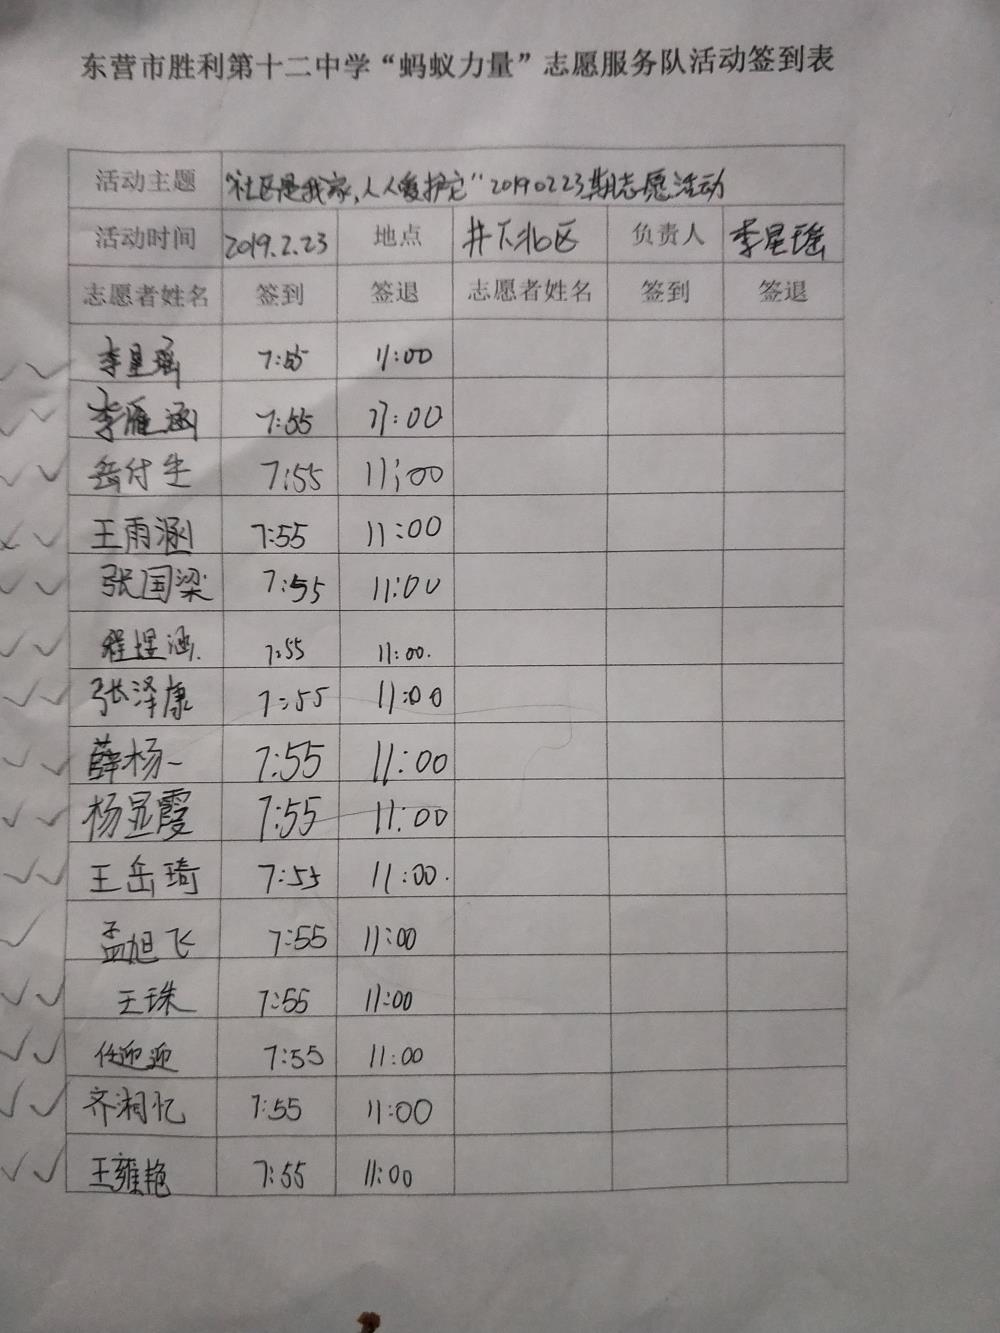 东营市胜利第十二中学“蚂蚁力量”志愿服务队活动签到表
活动主题 “社区是我家,人人爱护它”20190223期志愿活动
活动时间 2019.2.23 地点 井下北区 负责人 李星瑶
志愿者姓名 签到 签退 志愿者姓名 签到 签退
李星瑶 7:55 11:00
李雁涵 7:55 11:00
岳付生 7:55 11:00
王雨涵 7:55 11:00
张国梁 7:55 11:00
程煜涵. 7:55 11:00.
张泽康 7:55 11:00
薛杨一 7:55 11:00
杨显霞 7:55 11:00
王岳琦 7:55 11:00.
孟旭飞 7:55 11:00
王珠 7:55 11:00
任迎迎 7:55 11:00
齐湘忆 7:55 11:00
王雍艳 7:55 11:00